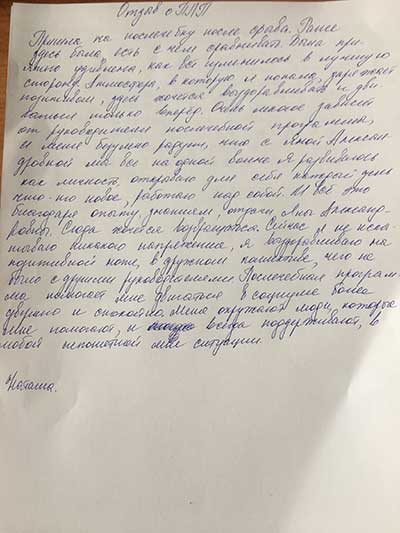 Отзыв о ППП
Пришла на послечебку после срыва. Ранее
здесь была, есть с чем сравнивать. Была при-
ятно удивлена, как всё изменилось в лучшую
сторону. Атмосфера, в которую я попала, заряжает
позитивом, здесь хочется выздоравливать и дви-
гаться только вперёд. Очень многое зависит
от руководителя послечебной программы,
и меня безумно радует, что с Яной Алексан-
дровной мы все на одной волне. Я развиваюсь
как личность, открываю для себя каждый день
что-то новое, работаю над собой. И всё это
благодаря опыту, знаниям, отдачи, Яны Александ-
ровны. Сюда хочется возвращаться. Сейчас я не испы-
тываю никакого напряжения, я выздоравливаю на
позитивной ноте, в дружном коллективе, чего не
было с другими руководителями. Послечебная програм-
ма помогает мне двигаться в социуме более
уверенно и спокойно. Меня окружают люди, которые
мне помогают, и всегда поддерживают, в
любой непонятной мне ситуации.
Наташа.